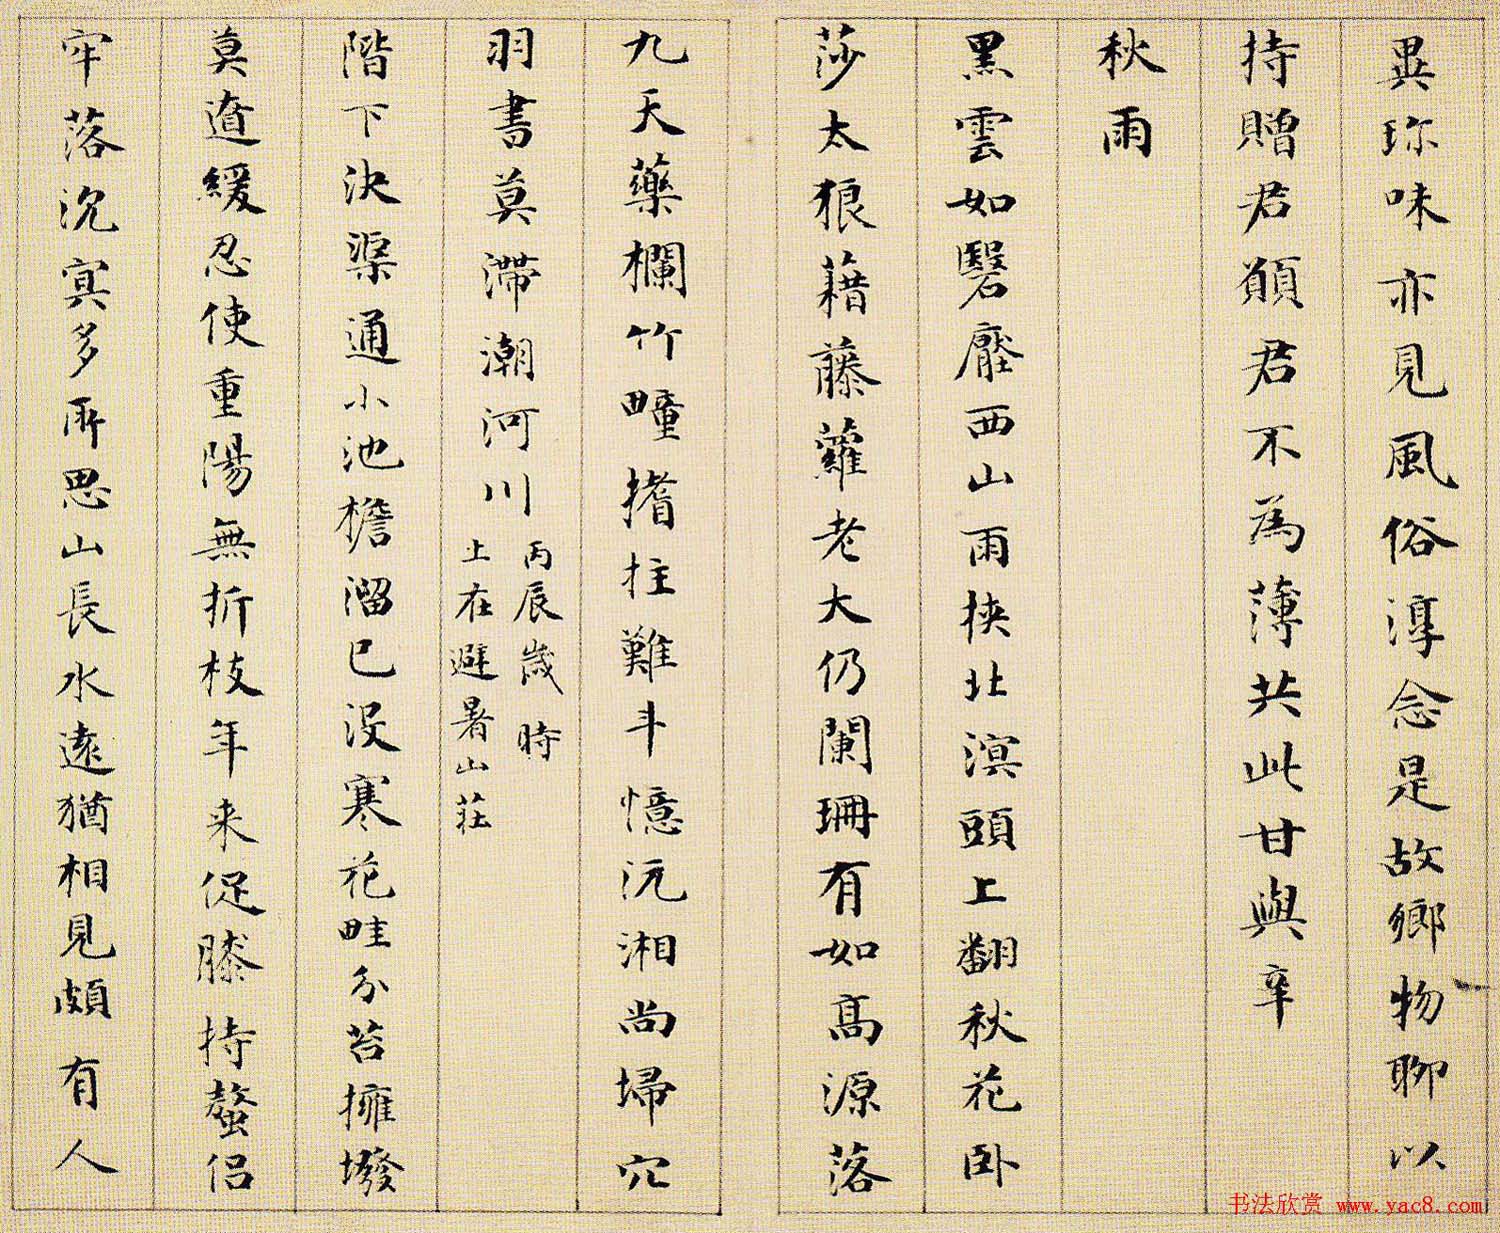 異珎味亦見風俗淳念是故鄉物聊以
持贈君願君不為薄共此甘與辛
秋雨
黑雲如翳壓西山雨挾北溟頭上翻秋花卧
莎太狼藉藤蘿老大仍闌珊有如高源落
九天藥欄竹疃搘拄難斗憶沅湘尚掃穴
羽書莫滯潮河川
丙辰歲時
上在避暑山莊
階下決渠通小池檐溜已没寒花畦分苔擁撥
莫遣緩忍使重陽無折枝年来促膝持螯侣
牢落沉冥多所思山長水遠猶相見頗有人
书法欣赏 www.yac8.com